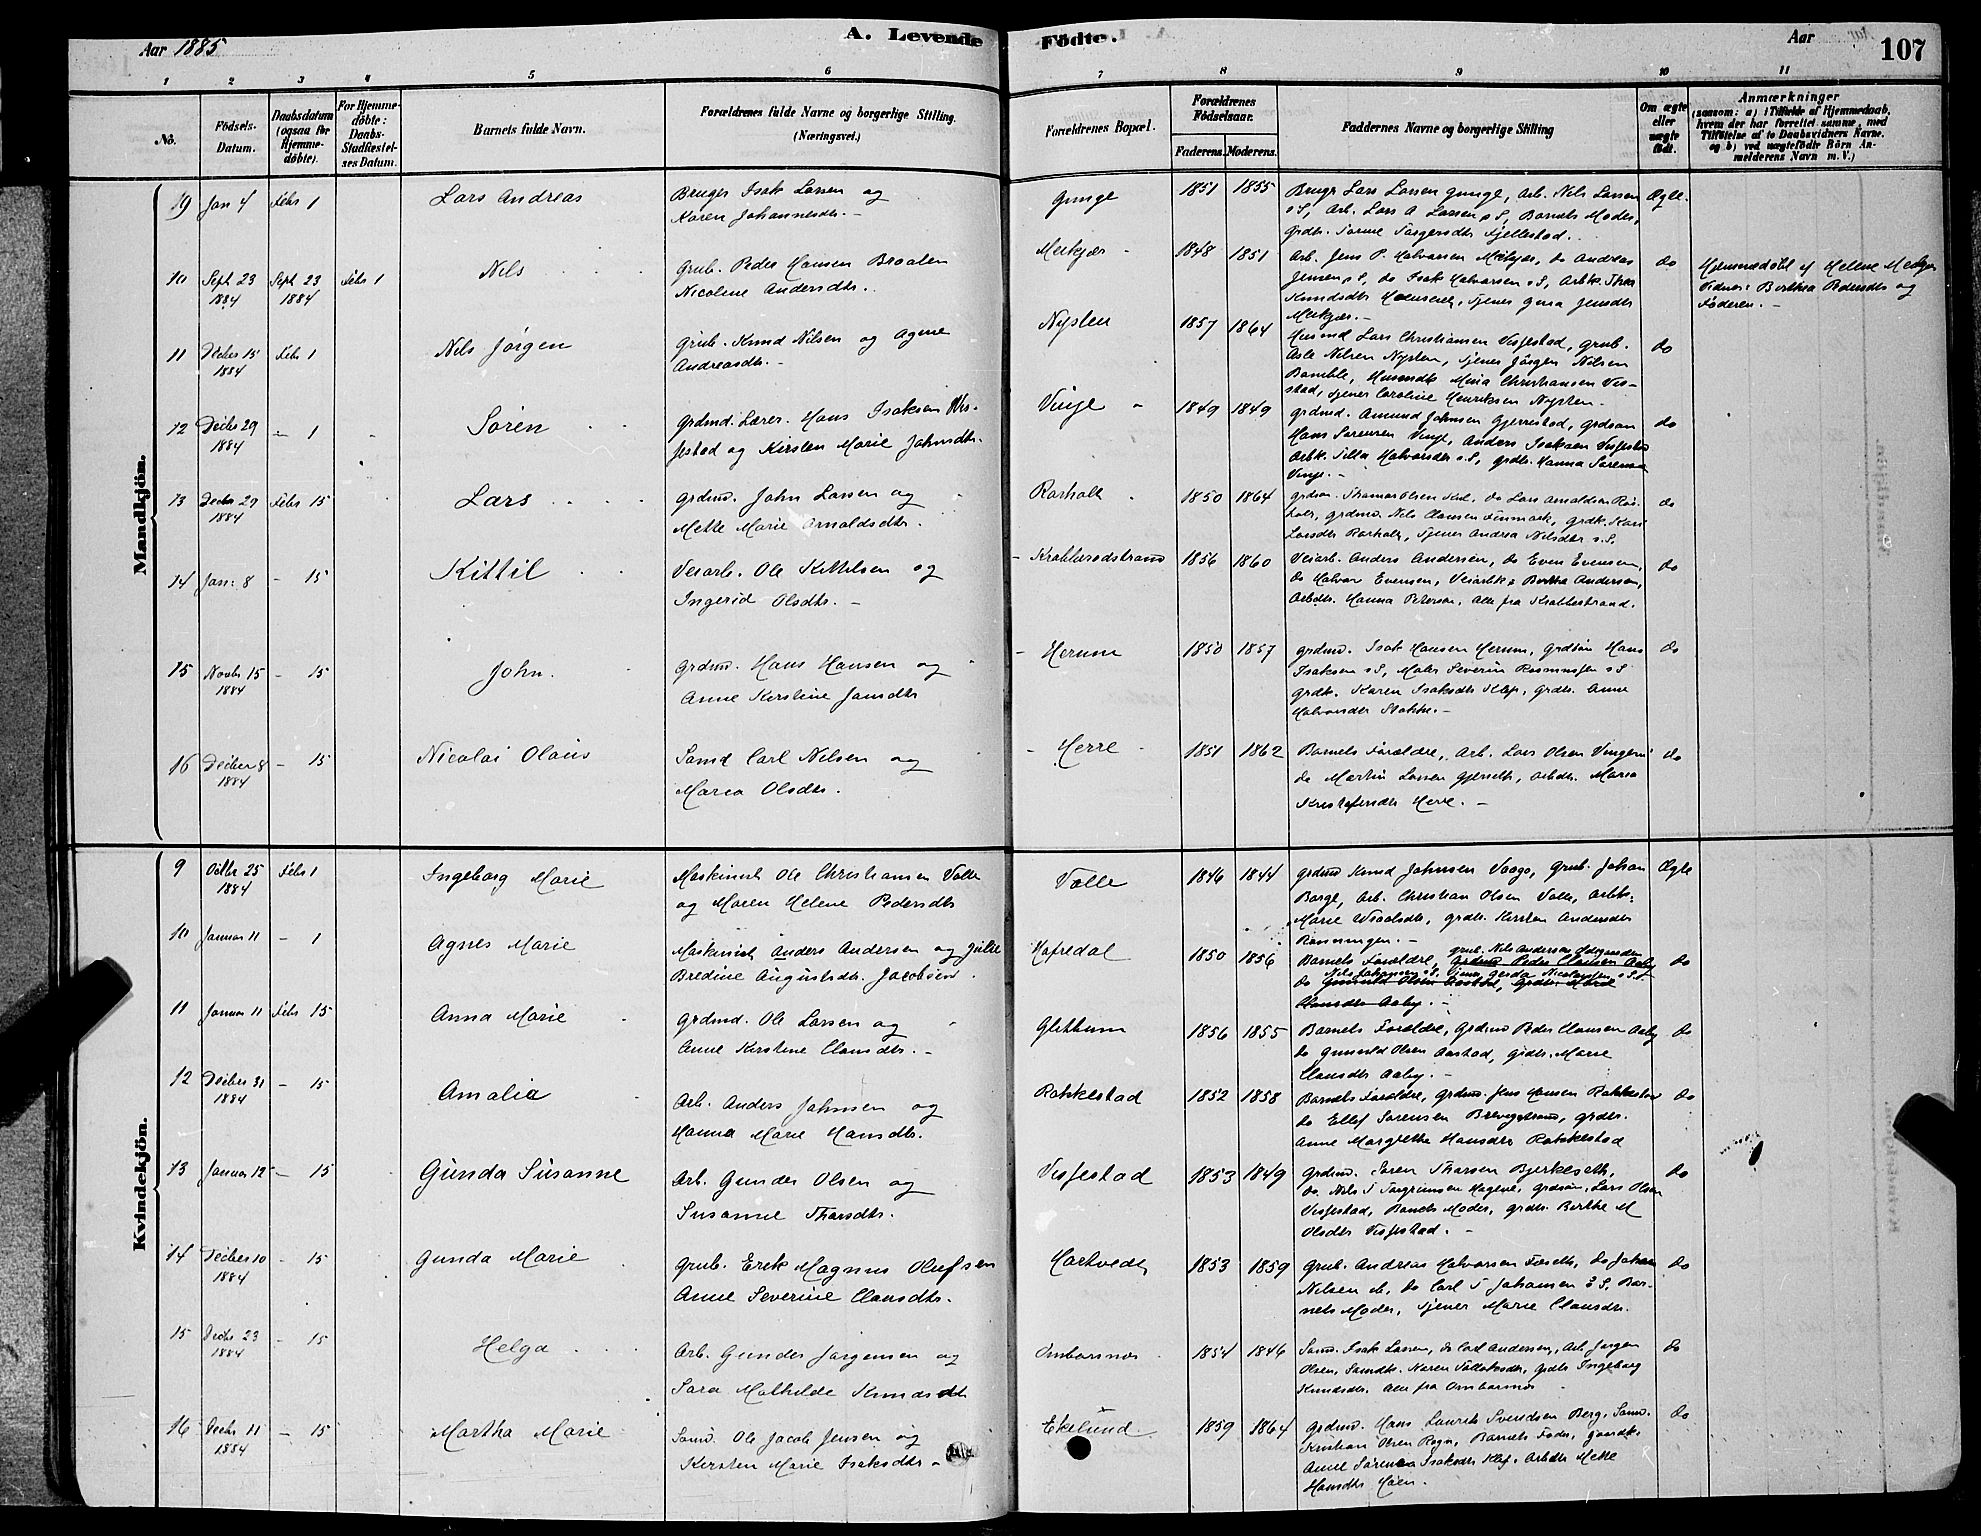 Aar 1885
A. Levende Födte.
Aar
107
1 2 3 4 5 6 7 8 9 10 11
No.
Födsels-Datum.
Daabsdatum (ogsaa for Hjemme-döbte).
For Hjemme-döbte: Daabs-Stadfæstel-ses Datum.
Barnets fulde Navn.
Forældrenes fulde Navne og borgerlige Stilling. (Næringsvei.)
Forældrenes Bopæl.
Forældrenes Födselsaar.
Faderens. Moderens.
Faddernes Navne og borgerlige Stilling
Om ægte eller uægte födt.
Anmærkninger
(saasom: a) i Tilfælde af Hjemmedaab, hvem der har forrettet samme, med Tilföielse af to Daabsvidners Navne, og b) ved uægtefödte Börn Anmelderens Navn m. V.)
Mandkjön.
19 Jan 4 Febr 1 Lars Andreas Bruger Isak Larsen og
Karen Johannesdtr. -
Gunge 1851 1855 Brugr Lars Larsen Gunge, Arb. Nils Larsen
s S, Arb. Lars A Larsen s S, Barnets Moder,
Ægte.
10 Sept 23 1884 Sept 23 1884 Febr 1 Nils Grub. Peder Hansen Braaten
Nicoline Andersdtr.
Meekjær 1848 1851 Arb. Jens P. Halvorsen Meekjær, do Andreas
Jensen s S, do Isak Halvorsen s S,
Meekjær. -
do Hjemmedøbt af Helene
Vidner: Berthea Pedersdtr og
Faderen. -
11 Decbr 15 1884 Febr 1 Nils Jörgen Grub. Knud Nilsen og Agne
Andreasdtr. -
Nysten 1857 1864 Husmd Lars Christiansen Visjestad, Grub.
Asle Nilsen Nysten, Tjener Jörgen Nilsen
Bamble, Maria Christiansen Vis-
stad, Tjener Caroline Henriksen Nysten -
do
12 Decbr 29 1884 - 1 Sören Grdmd. Lærer. Hans Isaksen Vis-
jestad og Kirsten Marie Johnsdtr.
Vinje 1849 1849 Grdmd. Amund Johnsen Gjerrestad, Grdsøn
Hans Sørensen Vinje, Anders Isaksen Visjestad
Halvorsdtr s S, Grdtr. Hanna Sørensen
Vinje. -
do
13 Decbr 29 1884 Febr 15 Lars Grdmd. John Larsen og
Mette Marie Arnoldsdtr.
Rørholt 1850 1864 Thomas Olsen do Lars Arnoldsen Rør-
holt, Grdmd. Nils Clausen Finmark, Grdk. Karen
Larsdtr Rørholt, Tjener Andrea Nilsdtr s S.
do
14 Jan: 8 - 15 Kittil Veiarb. Ole Kittilsen og
Ingerid Olsdtr. -
Krabberødstrand 1856 1860 Veiarb. Anders Andersen, do Even Evensen,
do Halvor Evensen, Veiarbk: Bertha Andersen,
Arbdtr. Hanna Peterson, Alle fra Krabbestrand.
do
15 Novbr 15 1884 - 15 John. Grdmd. Hans Hansen og
Anne Kirstine Jansdtr
Herum 1850 1857 Grdmd. Isak Hansen Herum, Grdsön Hans
Isaksen s S, Maler Severin Rasmussen s S
Grdk. Karen Isaksdtr Klep, Grdtr. Anne
Halvorsdtr Stokke. -
do
16 Decber 8 1884 - 15 Nicolai Olaüs Sømd Carl Nilsen og
Maren Olsdtr.
Herre 1851 1862 Barnets Forældre, Arb. Lars Olsen
do Martin Larsen Arbdtr. Maria
Kristofersdtr Herre. -
do
Kvindekjön.
9 Octbr 25 1884 Febr 1 Ingeborg Marie Maskinist Ole Christiansen Valle
og Maren Helene Pedersdtr
Valle 1846 1844 Grdmd Knud Johnsen Vaage, Grub. Johan
Borge, Arb. Christian Olsen Valle, Arbk.
Marie Grdtr. Kirsten Andersdtr
Rønningen. -
Ægte
10 Januar 11 - 1 Agnes Marie Maskinist Anders Andersen og Julie
Bredine Augustsdtr. Jacobsen.
Hafredal 1850 1856 Grub. Nils Andersen
Barnets Forældre, Grdmd Peder Clausen Aaby
Nils Johansen s S, Tjener Gerda Nicolaysen s S
do Gunnuld Olsen Aastad, Grdtr. Marie
Clausdtr Aaby. -
do
11 Januar 11 Febr 15 Anna Marie Grdmd. Ole Larsen og
Anne Kirstine Clausdtr. -
Glittum 1856 1855 Barnets Forældre, Grdmd Peder Clausen Aaby
do Gunnuld Olsen Aastad, Grdtr. Marie
Clausdtr Aaby. -
do
12 Decber 31 1884 - 15 Amalia Arb. Anders Johnsen og
Hanna Marie Hansdtr.
Rakkestad 1852 1858 Barnets Forældre, Grdmd. Jens Hansen Rakkestad
do Ellef Sørensen Brevigstrand, Grdtr.
Anne Margrethe Hansdtr Rakkestad
do
13 Januar 12 - 15 Gunda Susanne Arb. Gunder Olsen og
Susanne Tharsdtr.
Visjestad 1853 1849 Grdmd. Søren Tharsen Bjerkeseth,
do. Nils T Torgrimsen Hagene, Grdsøn, Lars Olsen
Visjestad, Barnets Moder, Grdtr. Berthe M
Olsdtr Visjestad. -
do
14 Decber 10 1884 - 15 Gunda Marie Grub. Erik Magnus Olufsen
Anne Severine Clausdtr.
Hartvedt 1853 1859 Grub. Andreas Halvorsen do Johan
Nilsen do Carl T Johansen s S, Bar-
nets Moder, Tjener Marie Clausdtr.
do
15 Decbr 23 1884 - 15 Helga Arb. Gunder Jørgensen og
Sara Mathilde Knudsdtr
Ombornæs 1854 1846 Sømd. Isak Larsen, do Carl Andersen, Arb Jørgen
Olsen, Sømdk. Grdtr Ingeborg
Knudsdtr. Alle fra Ombornæs
do
16 Decbr 11 1884 - 15 Martha Marie Sømd. Ole Jacob Jensen og
Kirsten Marie Isaksdtr -
Ekelund 1859 1864 Grdmd. Hans Laurits Svendsen Berg, Sømd.
Kristian Olsen Barnets Fader,
Anne Sørensen Isaksdtr Klep, Arbdtr Mette
Hansdtr Moen.
do